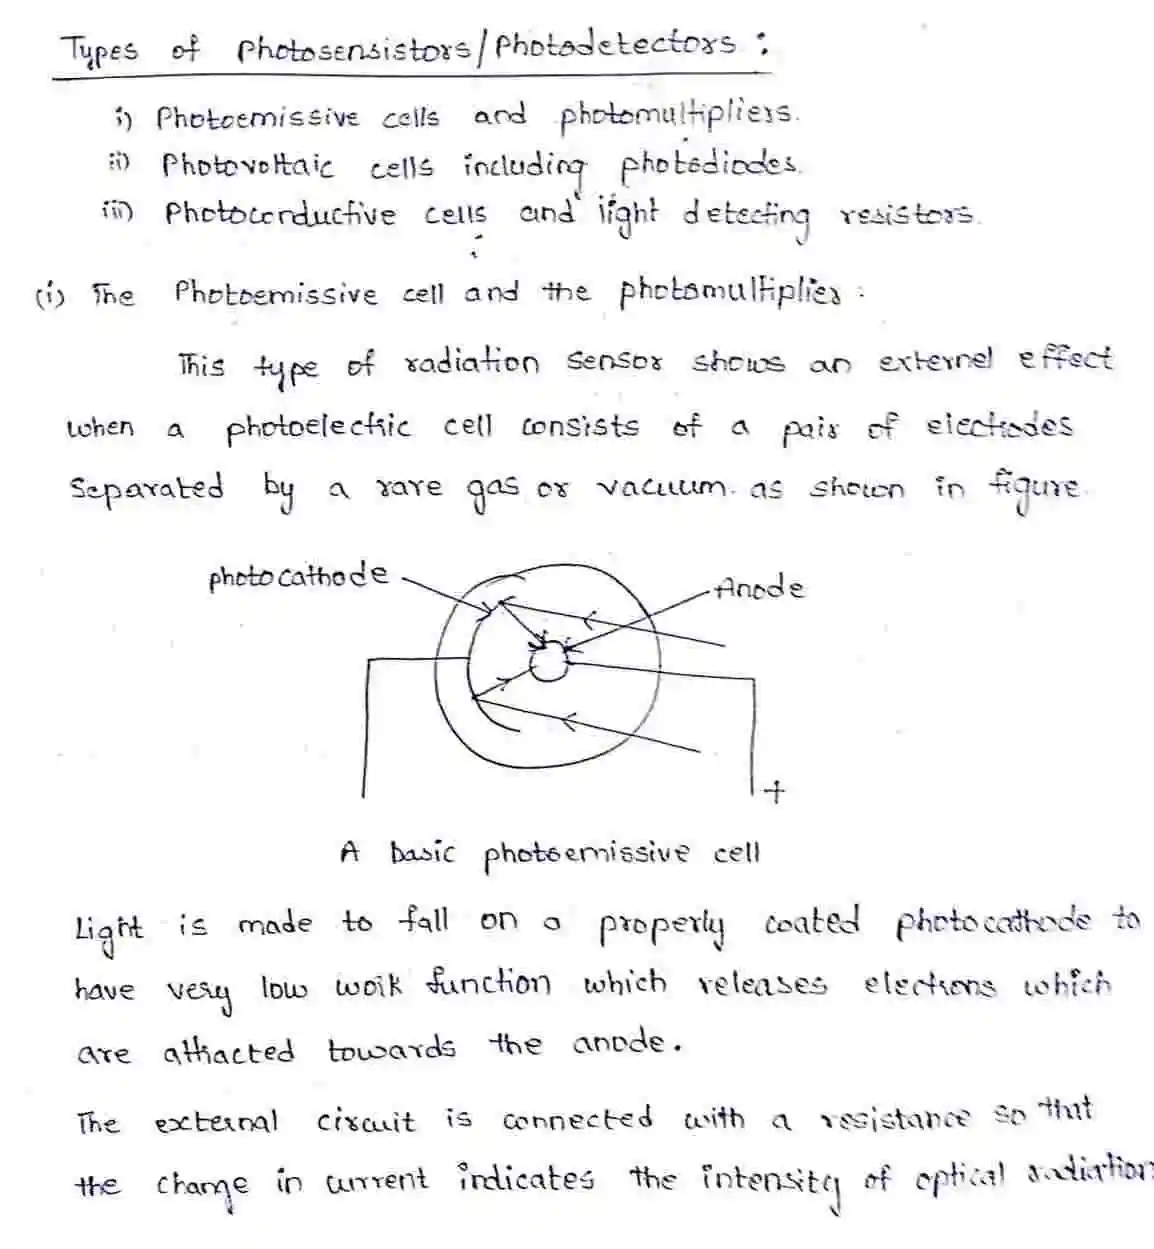 Types of Photosensistors/Photodetectors :
i) Photoemissive cells and photomultipliers.
ii) Photovoltaic cells including photodiodes.
iii) Photoconductive cells and light detecting resistors.
(i) The Photoemissive cell and the photomultiplier :
This type of radiation sensor shows an externel effect
when a photoelectric cell consists of a pair of electrodes
Separated by a rare gas or vacuum. as shown in figure.
photocathode
Anode
+
A basic photoemissive cell
Light is made to fall on a properly coated photocathode to
have very low work function which releases electrons which
are attracted towards the anode.
The external circuit is connected with a resistance so that
the change in current indicates the intensity of optical radiation